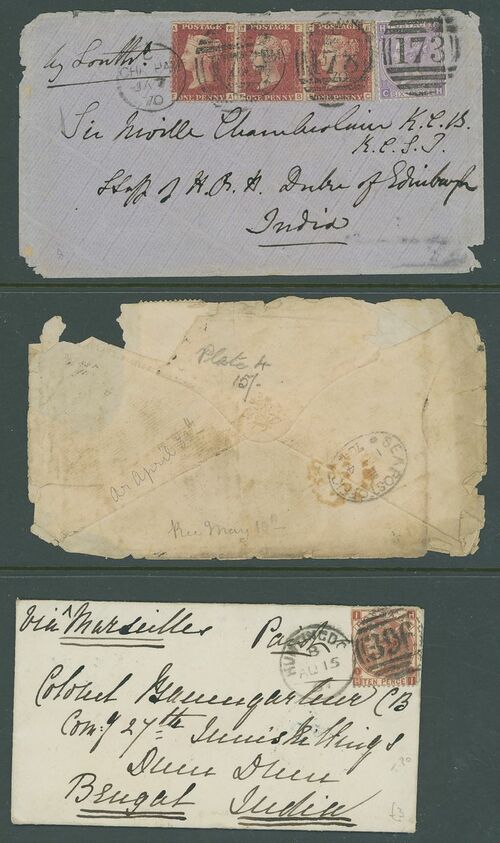 by Southn
POSTAGE POSTAGE POSTAGE POSTAGE
173 173 173
70
ONE PENNY ONE PENNY ONE PENNY
Sir Neville Chamberlain K.C.B.
K.C.S.I
Staff of H.R.H. Duke of Edinburgh
India
Plate 4
15/-
an April
SEA POST OFFICE
Rec May 10th
via Marseilles Paid
HUNTINGDON
B
AU 15
TEN PENCE
Colonel Baumgartner CB
Comg 27th Inniskillings
Dum Dum
Bengal India